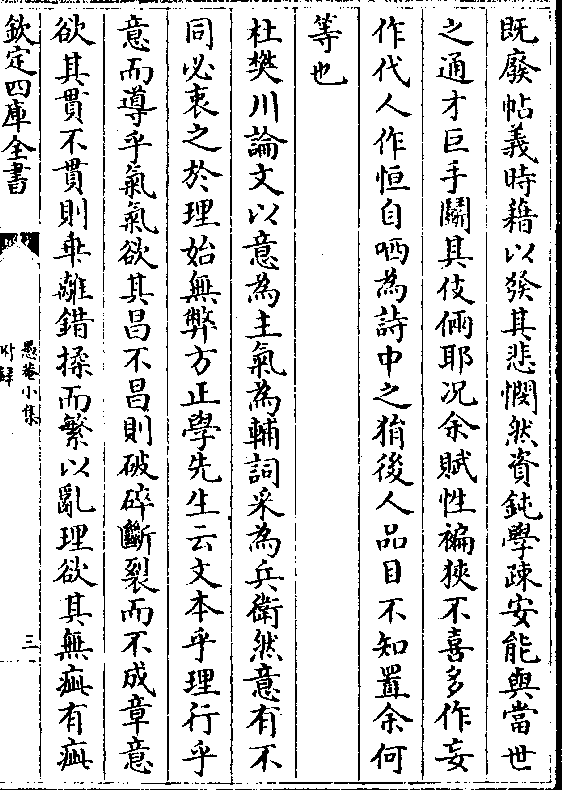 既廢帖義時藉以發其悲憫然資鈍學疎安能與當世
之通才巨手鬭其伎倆耶况余賦性褊狹不喜多作妄
作代人作恒自哂為詩中之狷後人品目不知置余何
等也
杜樊川論文以意為主氣為輔詞采為兵衛然意有不
同必衷之於理始無弊方正學先生云文本乎理行乎
意而導乎氣氣欲其昌不昌則破碎斷裂而不成章意
欲其貫不貫則乖離錯揉而繁以亂理欲其無疵有疵
欽定四庫全書
愚菴小集
附錄
三